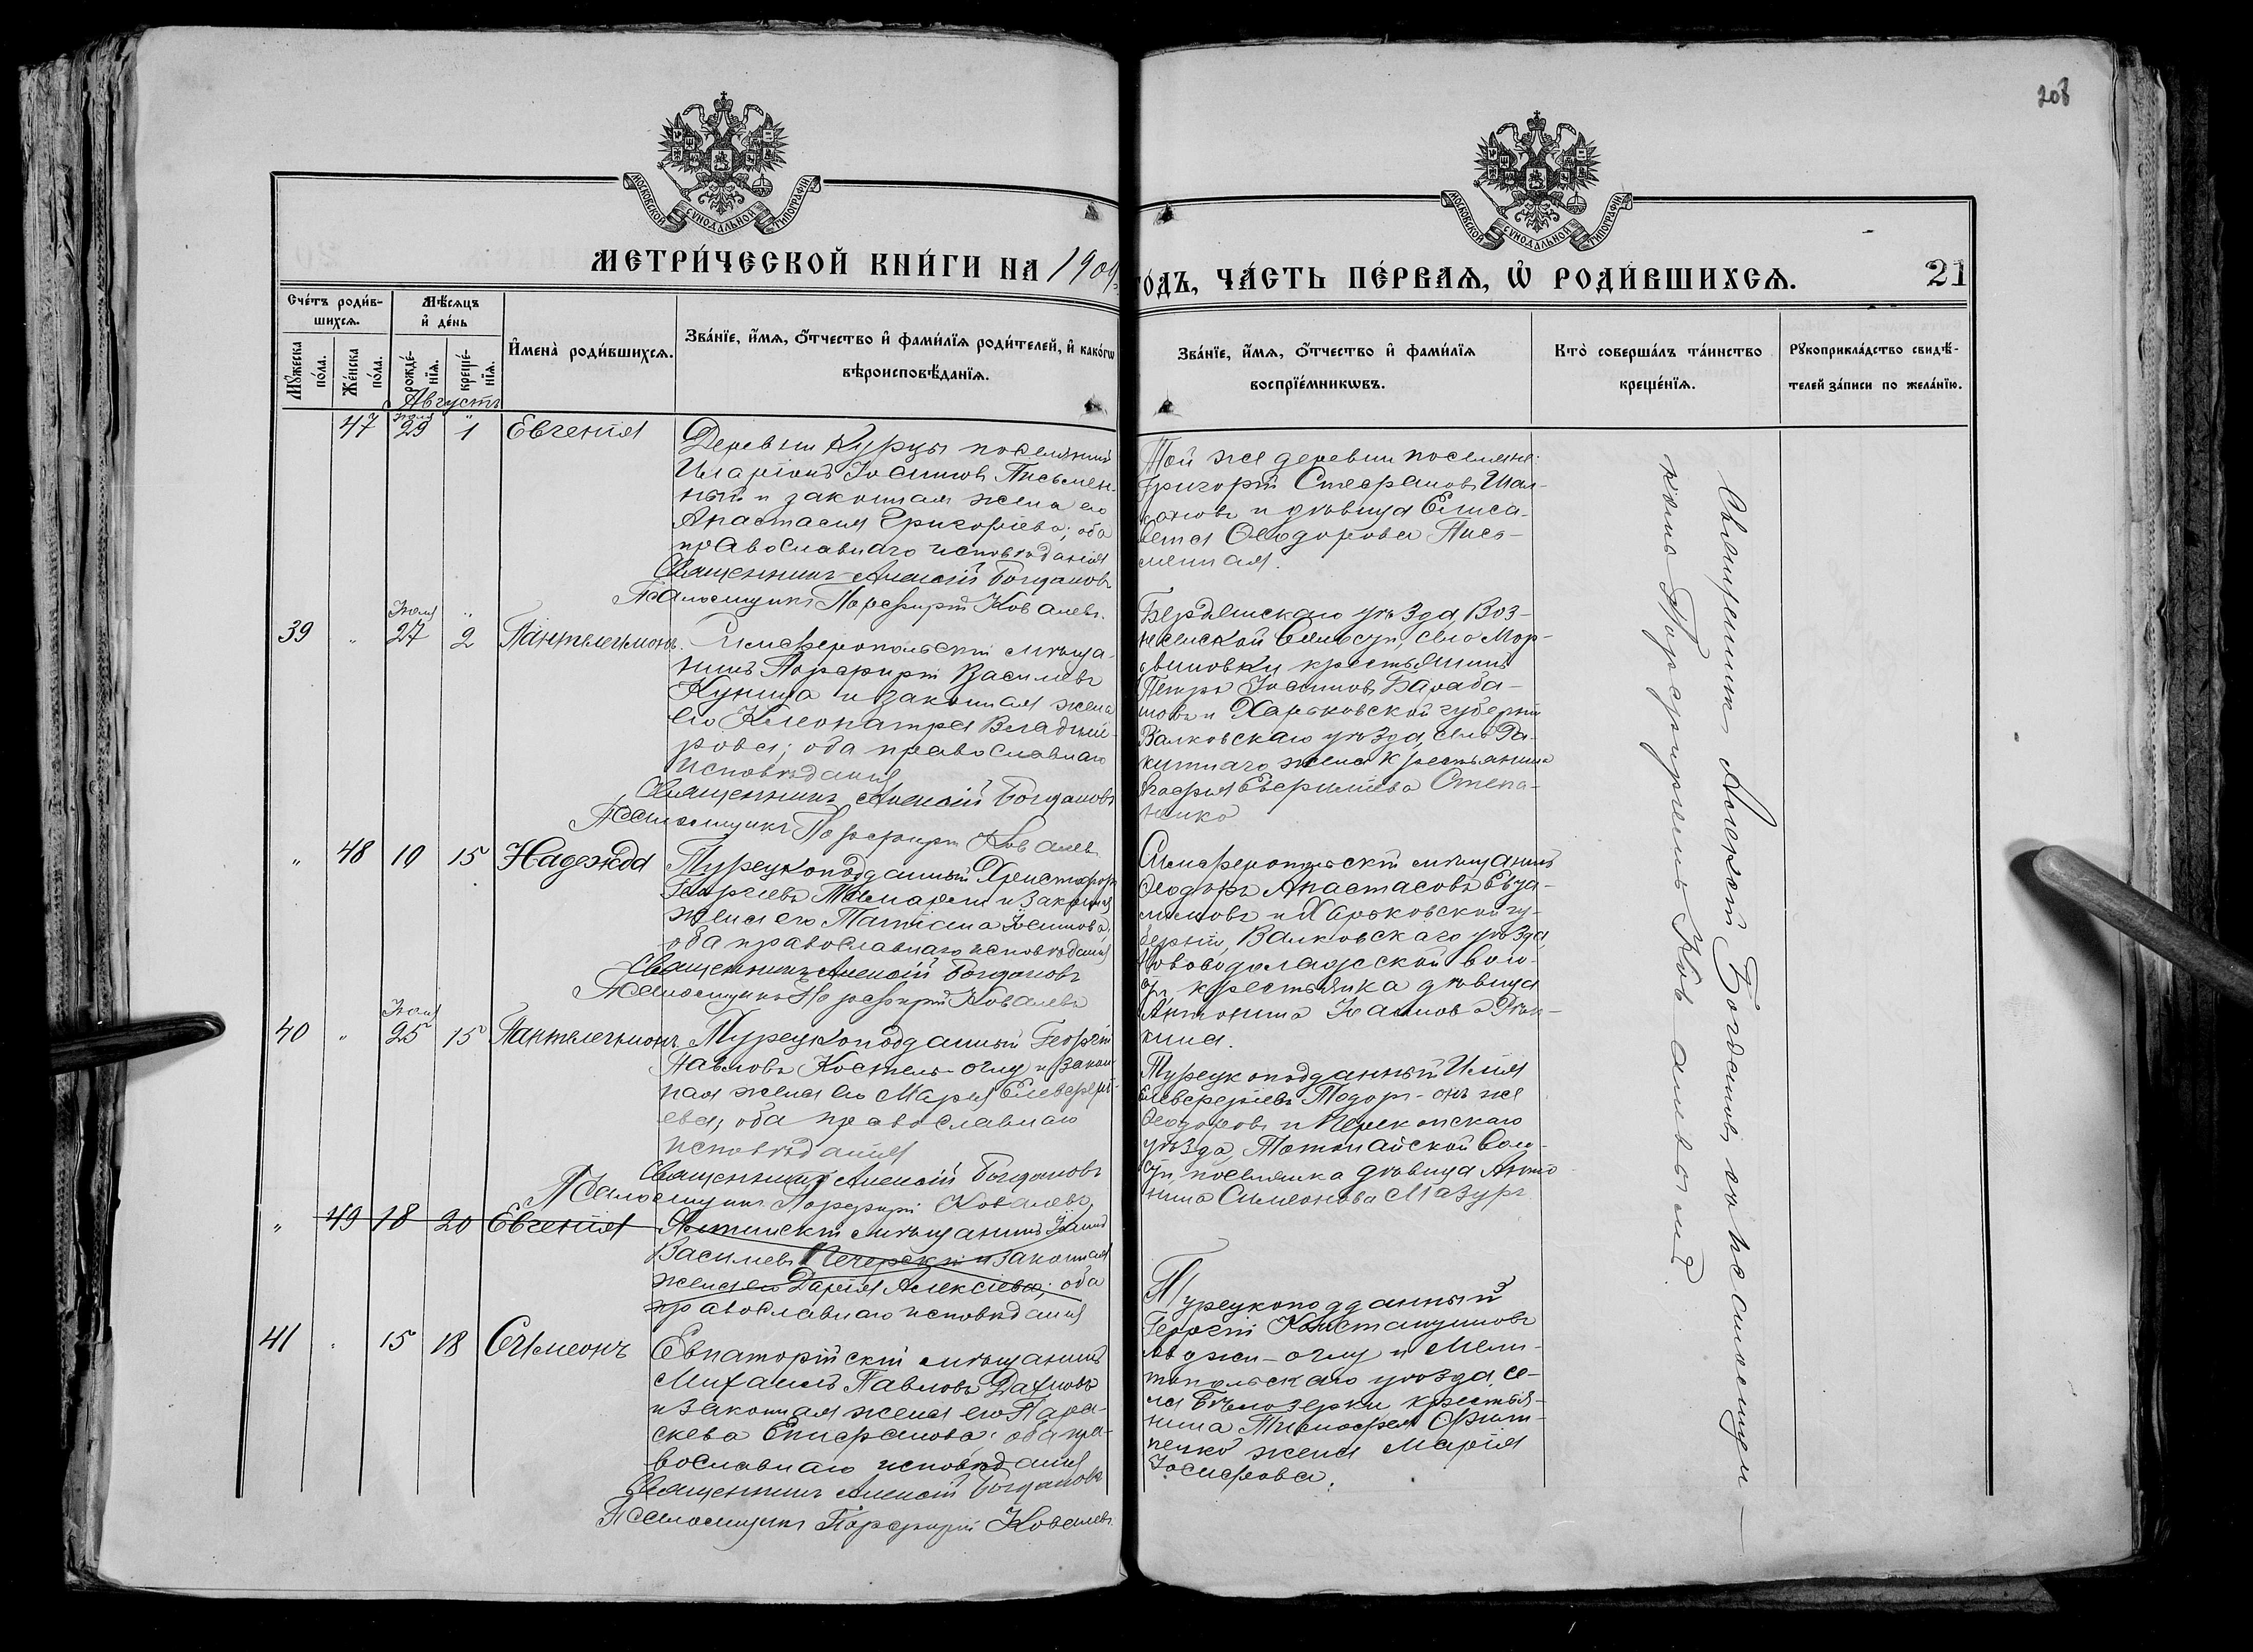 208
МОСКОВСКОЙ СѴНОДАЛЬНОЙ ТИПОГРАФІИ
МОСКОВСКОЙ СѴНОДАЛЬНОЙ ТИПОГРАФІИ
МЕТРИ́ЧЕСКОЙ КНИ́ГИ НА 1909
ГО́ДЪ, ЧА́СТЬ ПЕ́РВАѦ, Ѿ РОДИ́ВШИХСѦ.
21
Сче́тъ роди́в-
шихсѧ.
Мѣ́сѧцъ
и҆ де́нь
Мꙋ́жеска
по́ла.
Же́нска
по́ла.
рожде́-
нїѧ.
креще́-
нїѧ.
И҆мена̀ роди́вшихсѧ.
Зва́нїе, и҆́мѧ, ѻ҆́тчество и҆ фами́лїѧ роди́телей, и҆ како́гѡ
вѣроисповѣ́данїѧ.
Зва́нїе, и҆́мѧ, ѻ҆́тчество и҆ фами́лїѧ
воспрїе́мникѡвъ.
Кто̀ соверша́лъ та́инство
креще́нїѧ.
Рꙋкоприкла́дство свидѣ́-
телей за́писи по жела́нїю.
Августъ
Іюля
47 29 1 Евгенія
Деревни Курцы поселянинъ
Иларіонъ Іосифовъ Письмен-
ный и законная жена его
Анастасія Григоріева; оба
православнаго исповѣданія
Священникъ Алексій Богдановъ
Псаломщикъ Порфирій Ковалевъ.
Той же деревни поселяне:
Григорій Стефановъ
и дѣвица Елиса-
вета Ѳеодорова Пись-
менная.
Іюля
39 " 27 2 Пантелеимонъ.
Симферопольскій мѣща-
нинъ Порфирій Васильевъ
Куница и законная жена
его Клеопатра Владими-
рова; оба православнаго
исповѣданія
Священникъ Алексій Богдановъ
Псаломщикъ Порфирій Ковалевъ
Бердянскаго уѣзда, Воз-
несенской волости, села Мор-
двиновки крестьянинъ
Петръ Іосифовъ Балаба-
новъ и Харьковской губерніи
Валковскаго уѣзда, села Ра-
китнаго жена крестьянина
Агафія Степа-
ненко
" 48 10 15 Надежда
Турецкоподданный Христофоръ
Георгіевъ и законная
жена его Татіана
оба православнаго исповѣданія
Священникъ Алексій Богдановъ
Псаломщикъ Порфирій Ковалевъ
Симферопольскій мѣщанинъ
Ѳеодоръ Анастасовъ
и Харьковской гу-
берніи, Валковскаго уѣзда,
Нововодолажской воло-
сти крестьянка дѣвица
Антонина
кина.
Іюля
40 " 25 15 Пантелеимонъ.
Турецкоподданный Георгій
Павловъ Костель-оглу и закон-
ная жена его Марія Елевфері-
ева; оба православнаго
исповѣданія
Священникъ Алексій Богдановъ
Псаломщикъ Порфирій Ковалевъ
Турецкоподданный Илія
Елевферіевъ Тодоръ-онъ же
Ѳеодоровъ и Перекопскаго
уѣзда, Тотонайской воло-
сти, поселянка дѣвица Анто-
нина Симеонова Мазуръ
" 49 18 20 Евгенія
Ялтинскій мѣщанинъ
Васильевъ Печерскій и законная
жена его Дарія Алексіева; оба
православнаго исповѣданія
41 " 15 18 Симеонъ
Евпаторійскій мѣщанинъ
Михаилъ Павловъ Дахновъ
и законная жена его Пара-
скева Епифанова; оба пра-
вославнаго исповѣданія
Священникъ Алексій Богдановъ
Псаломщикъ Порфирій Ковалевъ
Турецкоподданный
Георгій Константиновъ
-оглу и Мели-
топольскаго уѣзда, се-
ла Бѣлозерки крестья-
нина Тимофея
жена Марія
Іосифова.
Священникъ Алексій Богдановъ съ псаломщи-
комъ Порфиріемъ Ковалевымъ